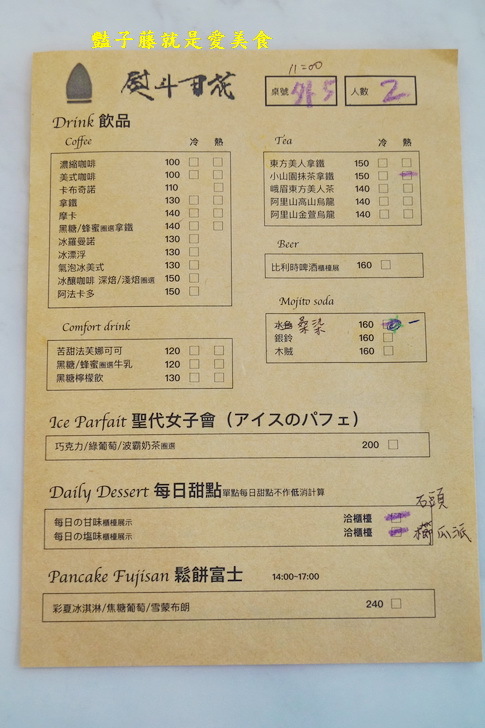 豔子藤就是愛美食
熨斗目花
11:00
桌號 外5 人數 2
Drink 飲品
Coffee 冷 熱
濃縮咖啡 100
美式咖啡 100
卡布奇諾 110
拿鐵 130
摩卡 140
黑糖/蜂蜜圈選拿鐵 140
冰羅曼諾 130
冰漂浮 130
氣泡冰美式 130
冰釀咖啡 深焙/淺焙圈選 150
阿法卡多 150
Comfort drink
苦甜法芙娜可可 120
黑糖/蜂蜜圈選牛乳 120
黑糖檸檬飲 130
Tea 冷 熱
東方美人拿鐵 150
小山園抹茶拿鐵 150
峨眉東方美人茶 140
阿里山高山烏龍 140
阿里山金萱烏龍 140
Beer
比利時啤酒櫃檯展 160
Mojito soda
水色 桑染 160
銀鈴 160
木賊 160
Ice Parfait 聖代女子會（アイスのパフェ）
巧克力/綠葡萄/波霸奶茶圈選 200
Daily Dessert 每日甜點單點每日甜點不作低消計算
石頭
每日の甘味櫃檯展示 洽櫃檯
每日の塩味櫃檯展示 洽櫃檯 樹瓜派
Pancake Fujisan 鬆餅富士 14:00-17:00
彩夏冰淇淋/焦糖葡萄/雪蒙布朗 240